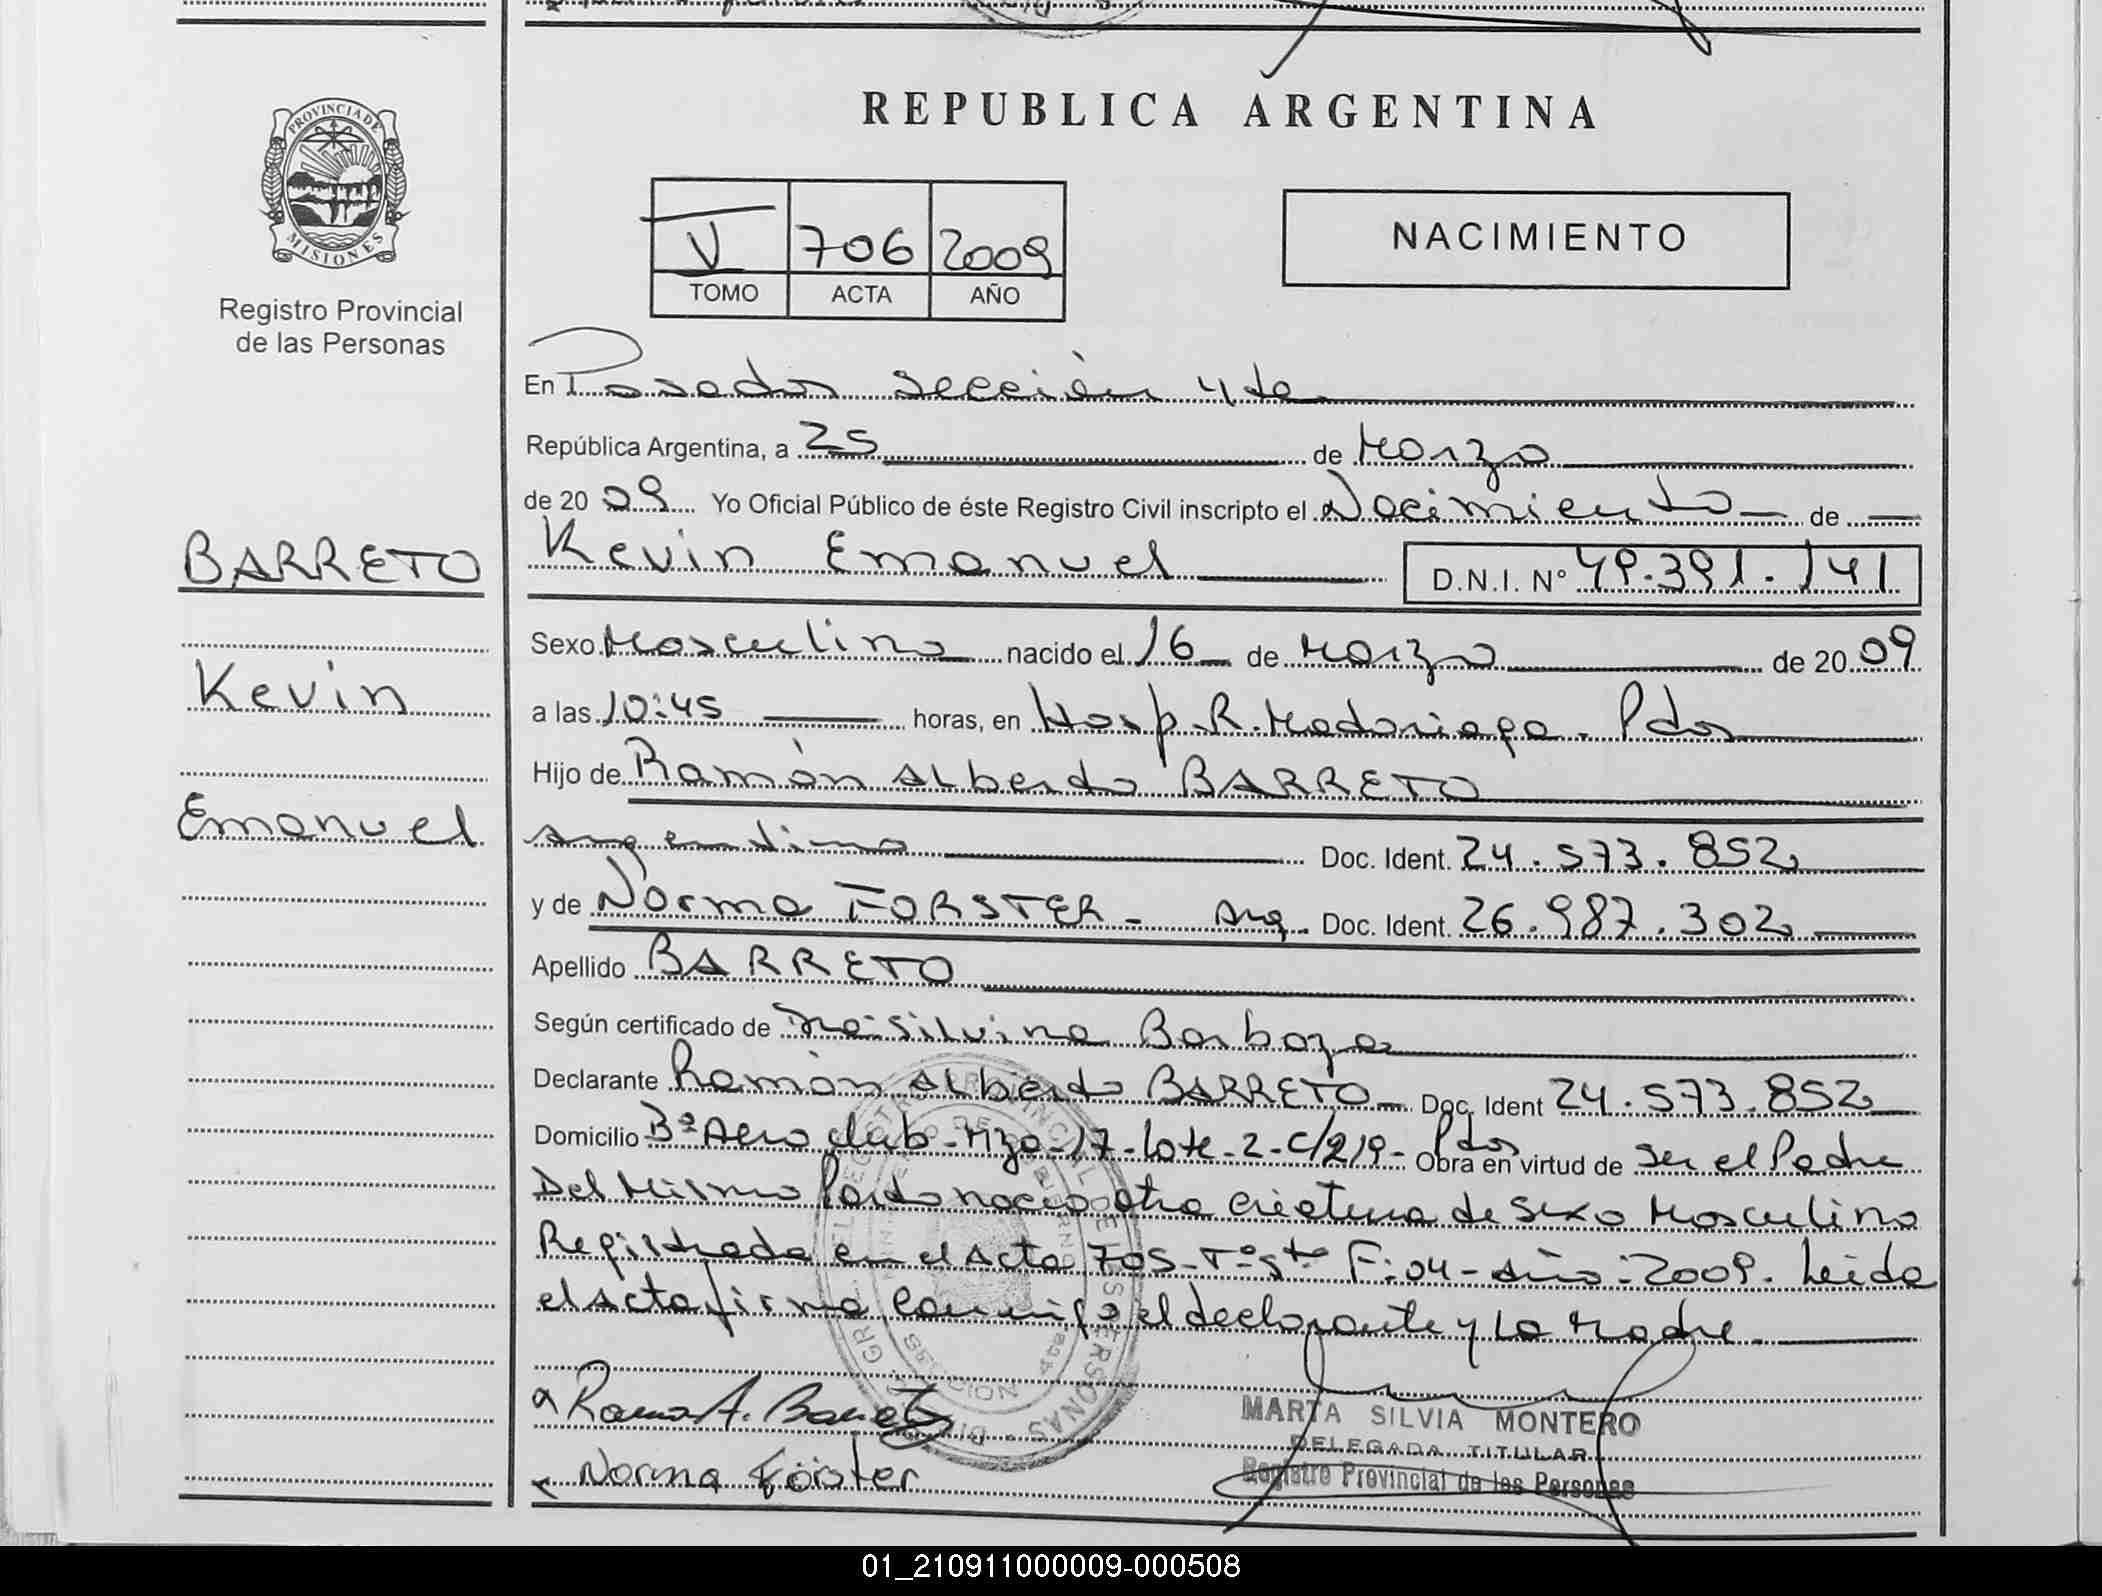 REPUBLICA ARGENTINA
PROVINCIA DE
MISIONES
Registro Provincial
de las Personas
V 706 2009
TOMO ACTA AÑO
NACIMIENTO
En Posadas sección 4ta
República Argentina, a 25 de Marzo
de 2009 Yo Oficial Público de éste Registro Civil inscripto el Nacimiento de
Kevin Emanuel D.N.I. Nº 49.391.141
BARRETO
Kevin
Emanuel
Sexo Masculino nacido el 16 de Marzo de 2009
a las 10:45 horas, en Hosp. R. Madariaga. Pdas
Hijo de Ramón Alberto BARRETO
Argentino Doc. Ident. 24.573.852
y de Norma FORSTER - Arg. Doc. Ident. 26.987.302
Apellido BARRETO
Según certificado de Silvina Barboza
Declarante Ramón Alberto BARRETO Doc. Ident 24.573.852
Domicilio Bº Aero club - Mza - 17 - Lote - 2 - C/219 - Pdas Obra en virtud de Ser el Padre
Del Mismo Parto nacio otra criatura de Sexo Masculino
Registrada en el Acta 705 - Tº 5to F: 04 - Año: 2009. Leida
el Acta firma conmigo el declarante y La Madre.
Ramon A. Barreto
Norma Förster
MARTA SILVIA MONTERO
DELEGADA TITULAR
Registro Provincial de las Personas
01_210911000009-000508